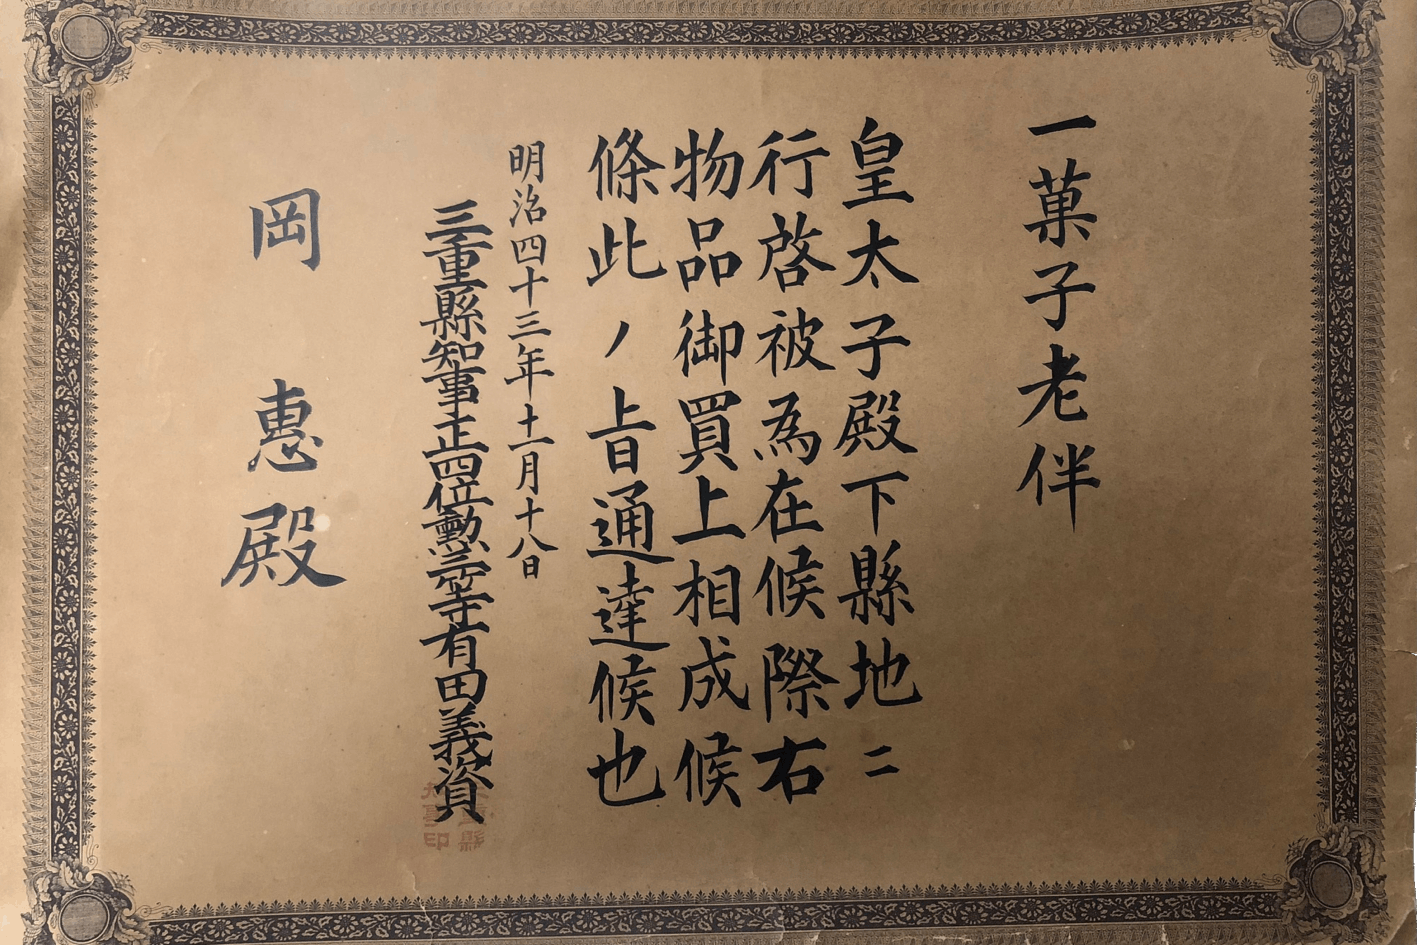 一菓子老伴
皇太子殿下縣地ニ
行啓被為在候際右
物品御買上相成候
條此ノ旨通達候也
明治四十三年十一月十八日
三重縣知事正四位勲三等有田義資
岡惠殿